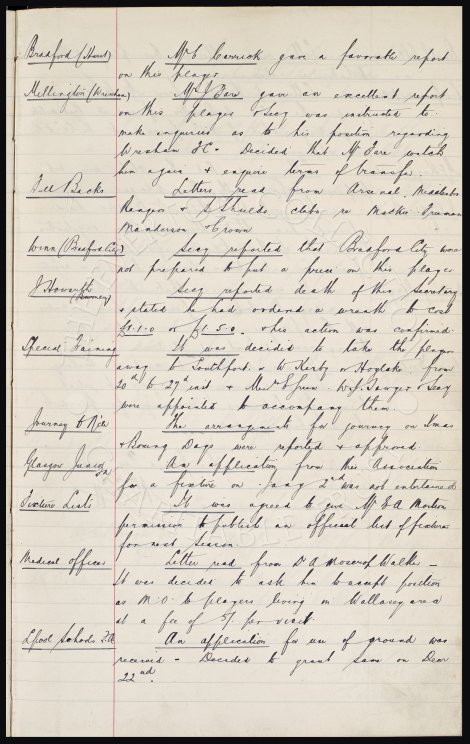 Bradford (Hurst) Mr E Carrick gave a favorable report
on this player
Millington (Wrexham) Mr J Fare gave an excellent report
on this player & Secy was instructed to
make enquiries as to his position regarding
Wrexham FC. Decided that Mr Fare watch
him again & enquire terms of transfer.
Full Backs Letters read from Arsenal, Middlesbro
Rangers & S. Shields clubs re Mackie Freeman
Manderson & Crown
Winn (Bradford City) Secy reported that Bradford City were
not prepared to put a price on this player
J Howarth (Burnley) Secy reported death of this Secretary
& stated he had ordered a wreath to cost
£1-1-0 or £1 5.0. & his action was confirmed.
Special Training It was decided to take the players
away to Southport or W Kirby or Hoylake from
20th to 27th inst & Messrs Green W.J. Sawyer & Secy
were appointed to accompany them.
Journey to The arrangements for journey on Xmas
& Boxing Days were reported & approved.
Glasgow Juniors An application from this Association
for a fixture on Jany 2nd was not entertained
Fixture Lists It was agreed to give Mr E A Morton
permission to publish an official list of fixtures
for next season.
Medical officer Letter read from Dr A Moscrop Walker –
It was decided to ask him to accept position
as M.O. to players living in Wallasey area
at a fee of 5/- per visit.
Lpool Schools F.A. An application for use of ground was
received – Decided to grant same on Decr
22nd.